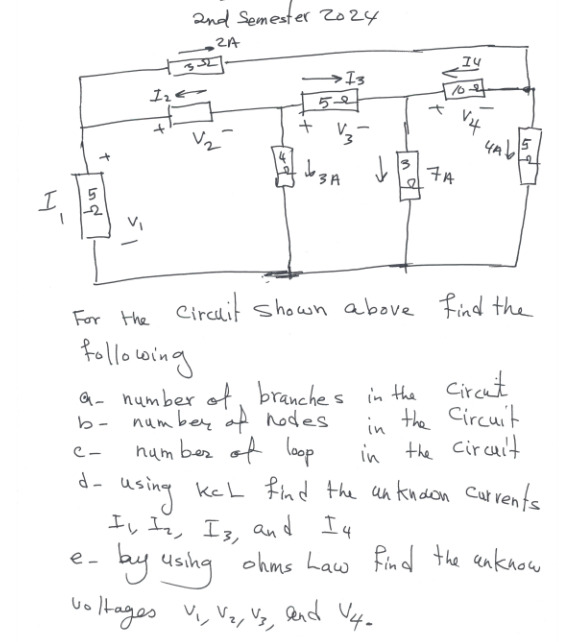 2nd Semester 2024
2A
3Ω
I2
I3
I4
5Ω
10Ω
+ V2 -
+ V3 -
+ V4 -
+
I1
5
Ω
V1
-
4
Ω
3A
3
Ω
7A
4A
5
Ω
For the circuit shown above find the
following
a- number of branches in the circut
b- number of nodes in the circuit
c- number of loop in the circuit
d- using kcL find the unknown currents
I1, I2, I3, and I4
e- by using ohms Law find the unknow
voltages V1, V2, V3, and V4.